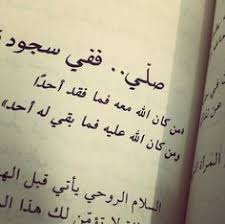 صلّي.. ففي سجود
«من كان الله معه فما فقد أحدًا
ومن كان الله عليه فما بقي له أحد»
السلام الروحي يأتي قبل
لك هذا